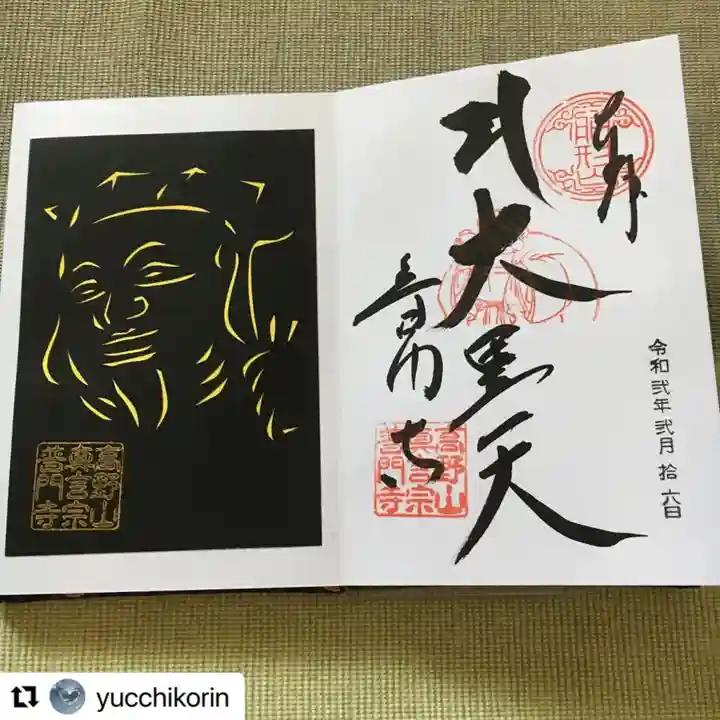 奉拝
大黒天
普門寺
令和弐年弐月拾六日
高野山
真言宗
普門寺
高野山
真言宗
普門寺
yucchikorin